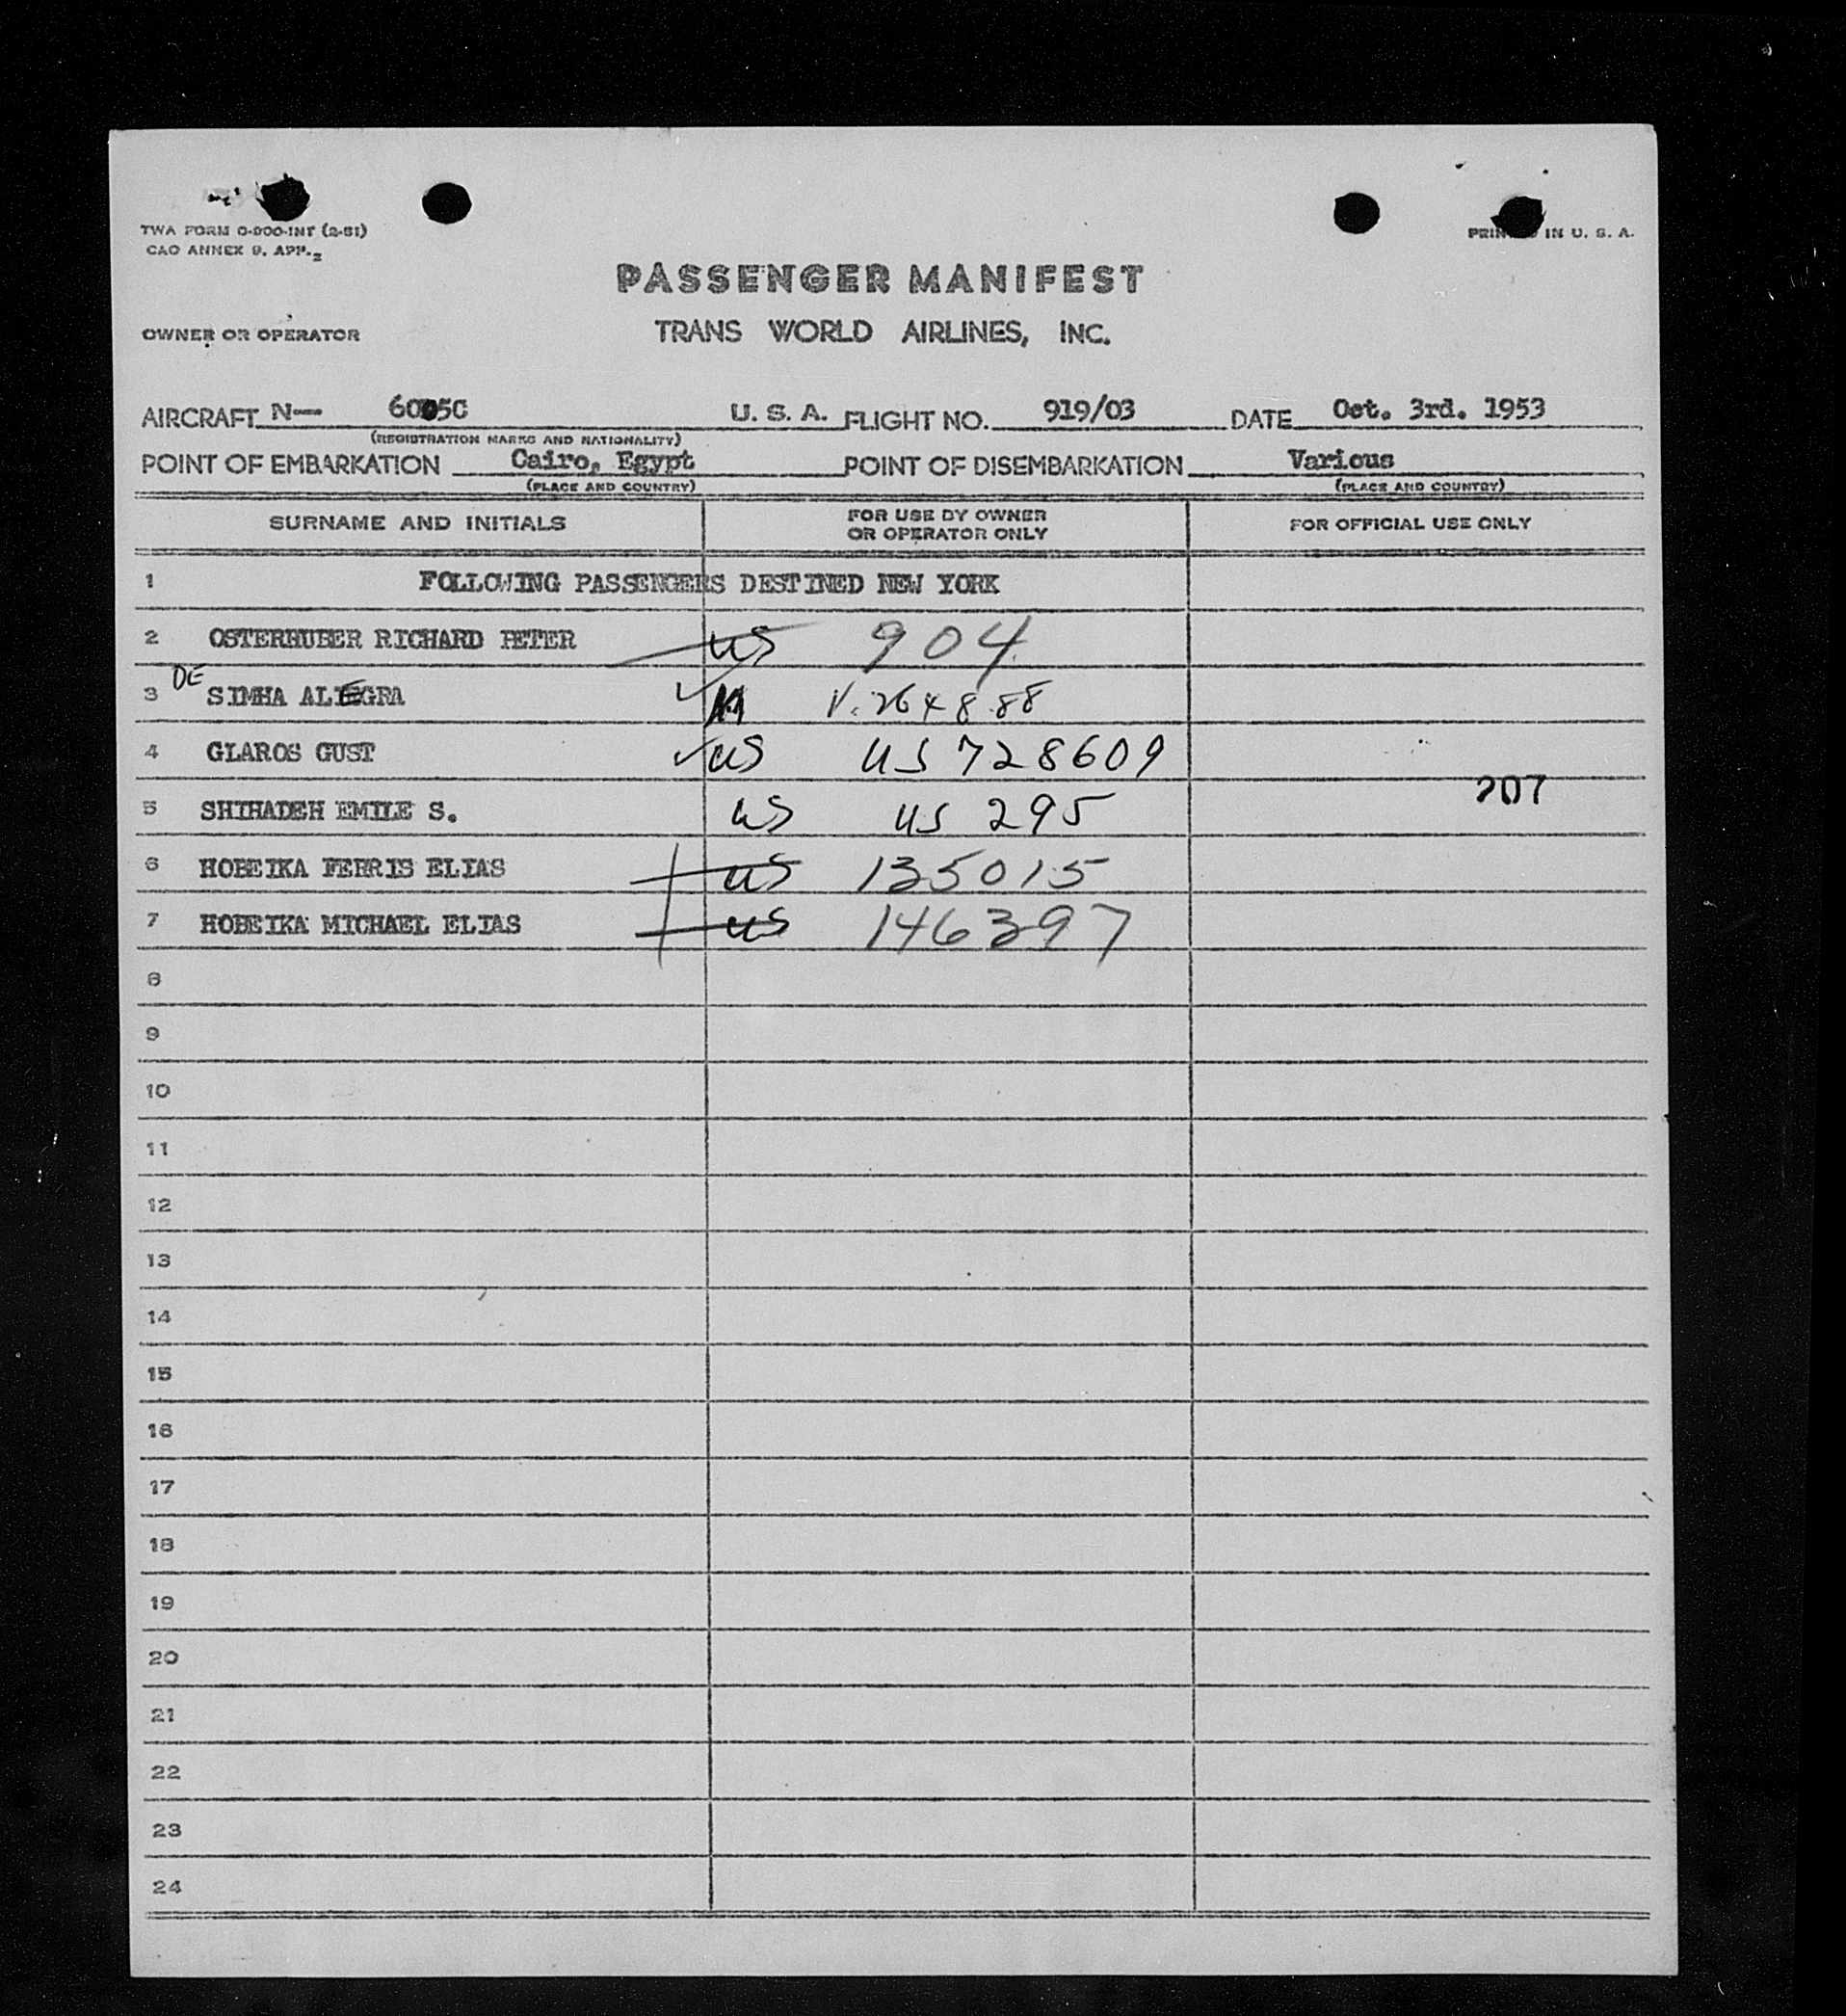 TWA FORM O-900-INT (2-51)
CAO ANNEX 9, APP. 2
IN U. S. A.
PASSENGER MANIFEST
OWNER OR OPERATOR
TRANS WORLD AIRLINES, INC.
AIRCRAFT N— U. S. A. FLIGHT NO. 919/03 DATE Oct. 3rd. 1953
(REGISTRATION MARKS AND NATIONALITY)
POINT OF EMBARKATION Cairo, Egypt POINT OF DISEMBARKATION Various
(PLACE AND COUNTRY) (PLACE AND COUNTRY)
SURNAME AND INITIALS FOR USE BY OWNER OR OPERATOR ONLY FOR OFFICIAL USE ONLY
1 FOLLOWING PASSENGERS DESTINED NEW YORK
2 OSTERHUBER RICHARD PETER US 904
3 DE SIMHA ALEGRA V. 264888
4 GLAROS GUST US US 728609
207
5 SHIHADEH EMILE S. US US 295
6 HOBEIKA FERRIS ELIAS US 135015
7 HOBEIKA MICHAEL ELIAS US 146397
8
9
10
11
12
13
14
15
16
17
18
19
20
21
22
23
24